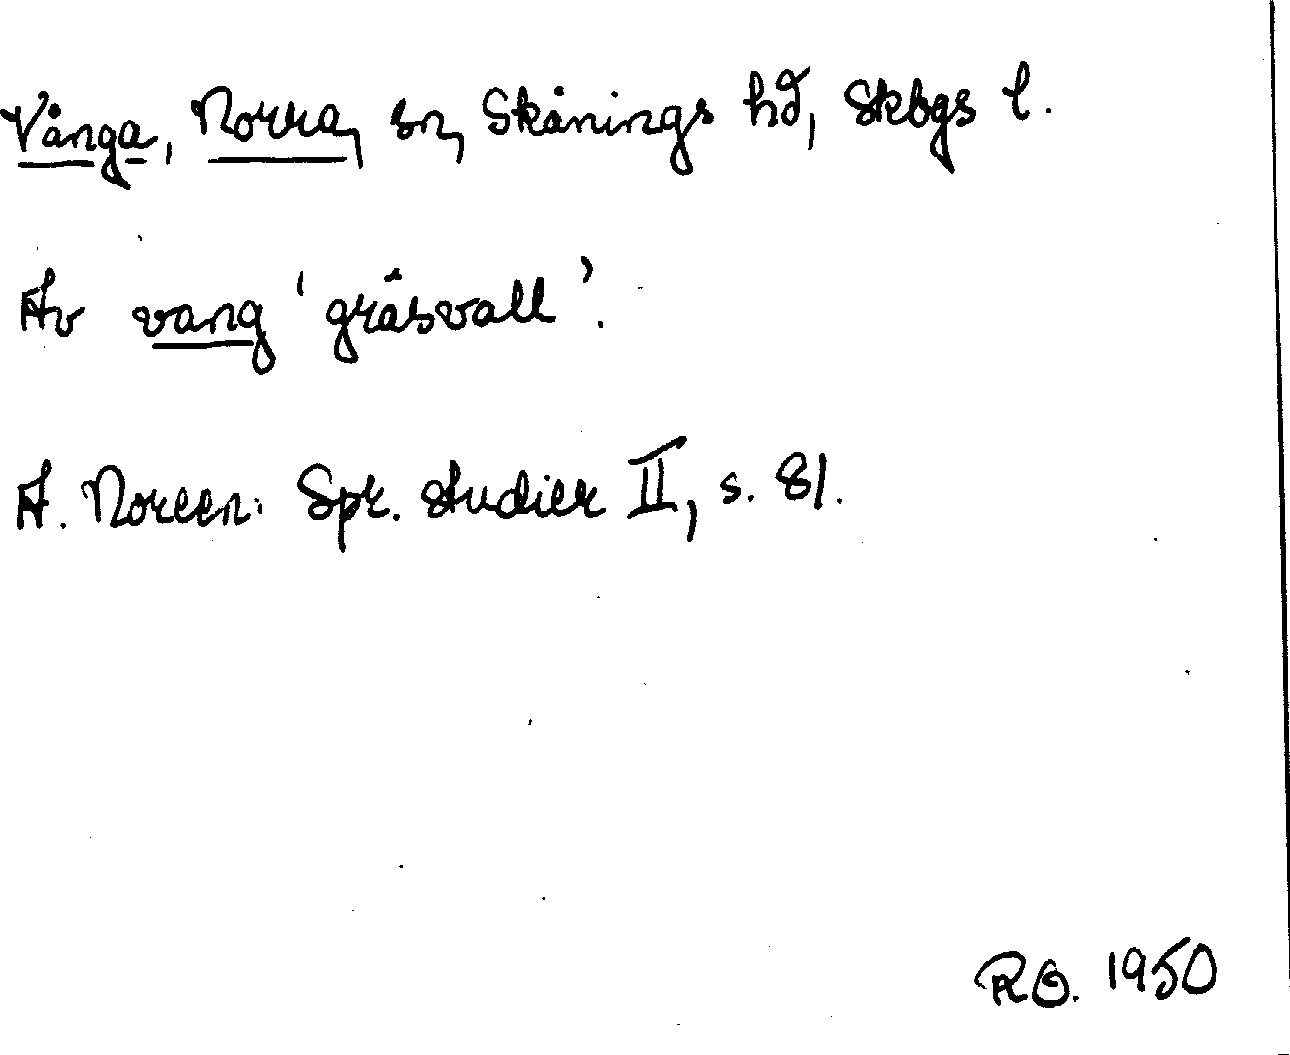 Vånga, Norra, sn, Skånings hd, Skbgs l.
Av vang 'gräsvall'.
A. Noreen: Spr. studier II, s. 81.
RO. 1950